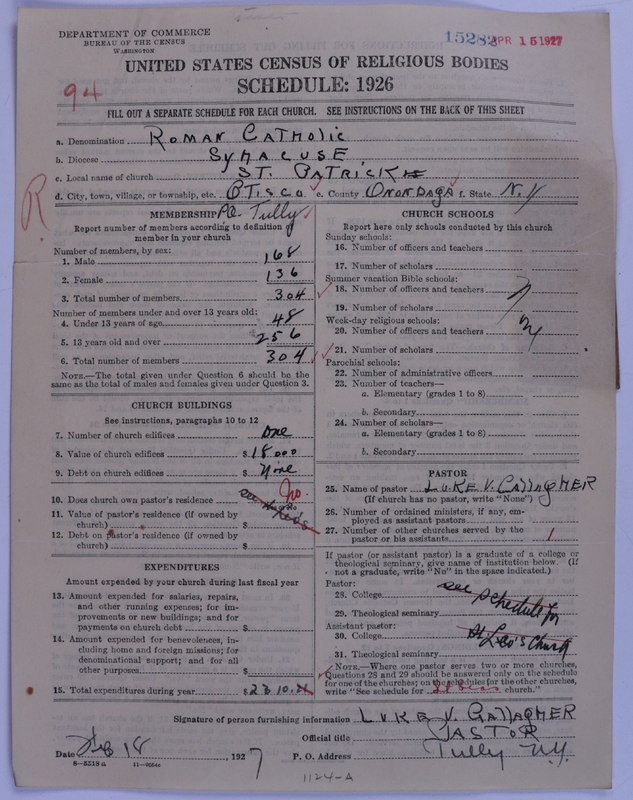 DEPARTMENT OF COMMERCE
BUREAU OF THE CENSUS
WASHINGTON
15282 APR 15 1927
UNITED STATES CENSUS OF RELIGIOUS BODIES
SCHEDULE: 1926
94
FILL OUT A SEPARATE SCHEDULE FOR EACH CHURCH. SEE INSTRUCTIONS ON THE BACK OF THIS SHEET
a. Denomination ROMAN CATHOLIC
b. Diocese SYRACUSE
c. Local name of church ST. PATRICK
d. City, town, village, or township, etc. OTISCO e. County ONONDAGA f. State N.Y
R
MEMBERSHIP P.O. Tully
Report number of members according to definition of
member in your church
Number of members, by sex:
1. Male 168
2. Female 136
3. Total number of members 304
Number of members under and over 13 years old:
4. Under 13 years of age 48
5. 13 years old and over 256
6. Total number of members 304
NOTE.—The total given under Question 6 should be the
same as the total of males and females given under Question 3.
CHURCH BUILDINGS
See instructions, paragraphs 10 to 12
7. Number of church edifices One
8. Value of church edifices $ 18000
9. Debt on church edifices $ None
10. Does church own pastor's residence No.
11. Value of pastor's residence (if owned by
church) $
12. Debt on pastor's residence (if owned by
church) $
EXPENDITURES
Amount expended by your church during last fiscal year
13. Amount expended for salaries, repairs,
and other running expenses; for im-
provements or new buildings; and for
payments on church debt $
14. Amount expended for benevolences, in-
cluding home and foreign missions; for
denominational support; and for all
other purposes $
15. Total expenditures during year $ 2310.
CHURCH SCHOOLS
Report here only schools conducted by this church
Sunday schools:
16. Number of officers and teachers
17. Number of scholars
Summer vacation Bible schools:
18. Number of officers and teachers
19. Number of scholars
Week-day religious schools:
20. Number of officers and teachers
21. Number of scholars
Parochial schools:
22. Number of administrative officers
23. Number of teachers—
a. Elementary (grades 1 to 8)
b. Secondary
24. Number of scholars—
a. Elementary (grades 1 to 8)
b. Secondary
PASTOR
25. Name of pastor LUKE V. GALLAGHER
(If church has no pastor, write "None")
26. Number of ordained ministers, if any, em-
ployed as assistant pastors
27. Number of other churches served by the
pastor or his assistants 1
If pastor (or assistant pastor) is a graduate of a college or
theological seminary, give name of institution below. (If
not a graduate, write "No" in the space indicated.)
Pastor:
28. College see schedule for
29. Theological seminary
Assistant pastor:
30. College St Leo's Church
31. Theological seminary
NOTE.—Where one pastor serves two or more churches,
Questions 28 and 29 should be answered only on the schedule
for one of the churches; on the schedules for the other churches,
write "See schedule for St Leo's church."
Signature of person furnishing information LUKE V. GALLAGHER
Official title PASTOR
Date Feb 18, 1927 P. O. Address Tully N.Y.
8-5318a 11-9554c
1124-A